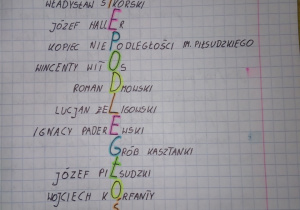 WŁADYSŁAW SIKORSKI
JÓZEF HALLER
KOPIEC NIEPODLEGŁOŚCI IM. PIŁSUDZKIEGO
WINCENTY WITOS
ROMAN DMOWSKI
LUCJAN ŻELIGOWSKI
IGNACY PADEREWSKI
GRÓB KASZTANKI
JÓZEF PIŁSUDZKI
WOJCIECH KORFANTY
Ś